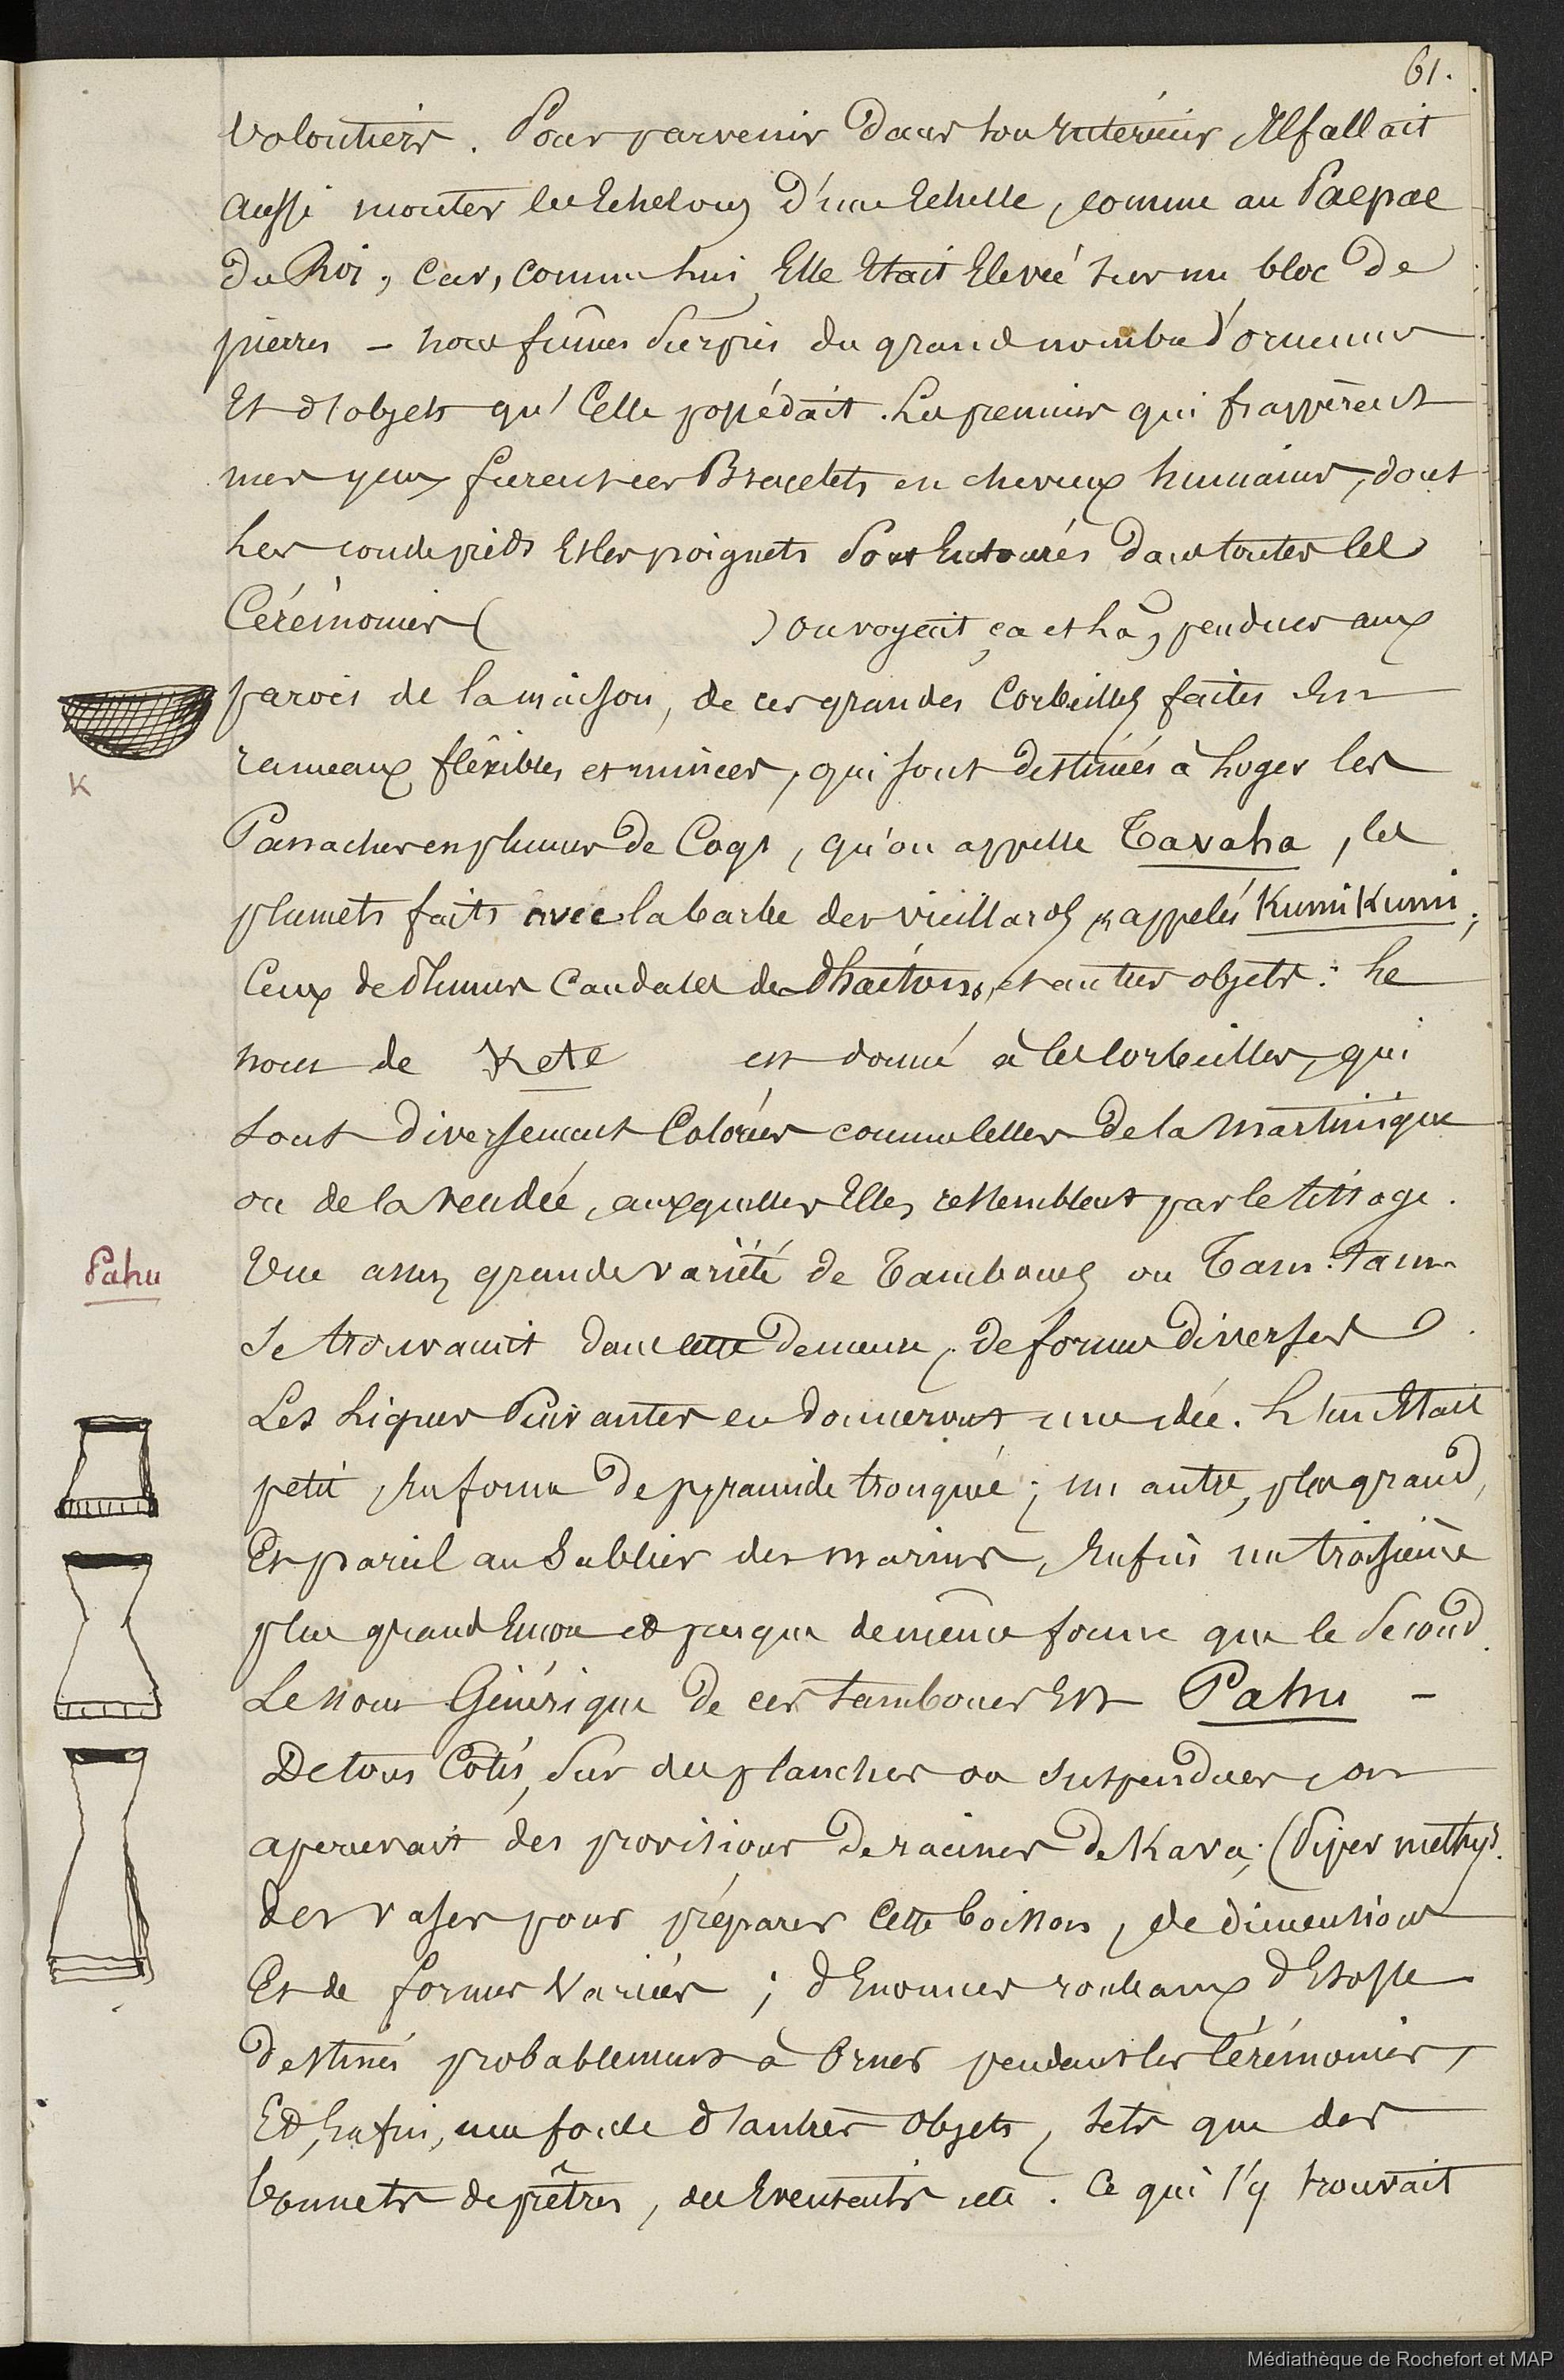 61.
volontiers. Pour parvenir dans son Intérieur Il fallait
aussi monter les Echelons d'une Echelle, comme au Paepae
du Roi, car, comme lui, Elle Etait Elevée sur un bloc de
pierres – nous fûmes surpris du grand nombre d'ornemens
Et d'objets qu'Elle possédait. Les premiers qui frappèrent
mes yeux furent ces Bracelets en cheveux humains, dont
les coudepieds Et les poignets sont Entourés dans toutes les
Cérémonies ( ) on voyait ça et là, pendues aux
parois de la maison, de ces grandes Corbeilles faites En
rameaux flexibles et minces, qui sont destinées à loger les
K
Panaches en plumes de Coqs, qu'on appelle Tavaha, les
plumets faits avec la barbe des vieillards, appelés Kumi Kumi;
Ceux de plumes Caudales de Phaétons, et autres objets: le
nom de Kete est donné à ces Corbeilles, qui
sont diversement Colorées comme celles de la Martinique
ou de la Vendée, auxquelles Elles ressemblent par le tissage.
Pahu
Une assez grande variété de Tambours ou Tam-tam
se trouvaient dans cette Demeure, de formes Diverses
Les Lignes suivantes en donneront une idée. L'un Etait
petit, En forme de pyramide tronquée; un autre, plus grand,
Et pareil au Sablier des marins, Enfin un troisième
plus grand Encore et presque de même forme que le Second.
Le nom Générique de ces tambours Est Pahu –
De tous Côtés, sur des planches ou suspendues, on
apercevait des provisions de racines de Kava; (Piper methys.
des vases pour préparer Cette boisson, de dimensions
Et de formes Variées; d'Enormes rouleaux d'Etoffe
destinés probablement à Orner pendant les Cérémonies,
Et, Enfin, une foule d'autres Objets, tels que des
bonnets de prêtres, des Eventails, etc. Ce qui s'y trouvait
Médiathèque de Rochefort et MAP